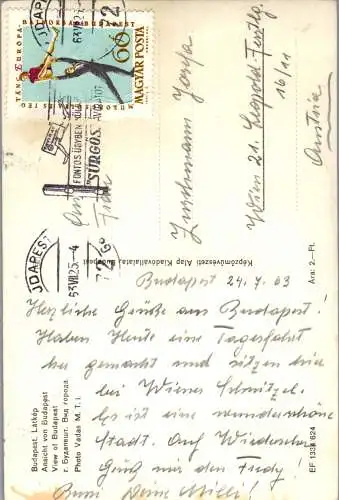 Budapest 24. 7. 63
Herzliche Grüße aus Budapest!
Haben Heute eine Tagesfahrt
her gemacht und sitzen hier
bei Wiener Schnitzel.
Es ist eine wunderschöne
Stadt. Auf Wiedersehen
Gruß von den Fredy!
Deine Milli!
Familie
Wien 21. Leopold-Ferstlg.
16/11
Austria
TÁNC EURÓPA BAJNOKSÁG BUDAPEST
60
MAGYAR POSTA
BUDAPEST
63 VII 25.-4
FONTOS ÜGYBEN KÜLDJ
SÜRGÖS
TÁVIRATOT
72
Képzőművészeti Alap Kiadóvállalata, Budapest
Budapest. Látkép
Ansicht von Budapest
View of Budapest
г. Будапешт. Вид города.
Photo Vadas M. T. I.
Ára: 2.– Ft.
EF 1334 624